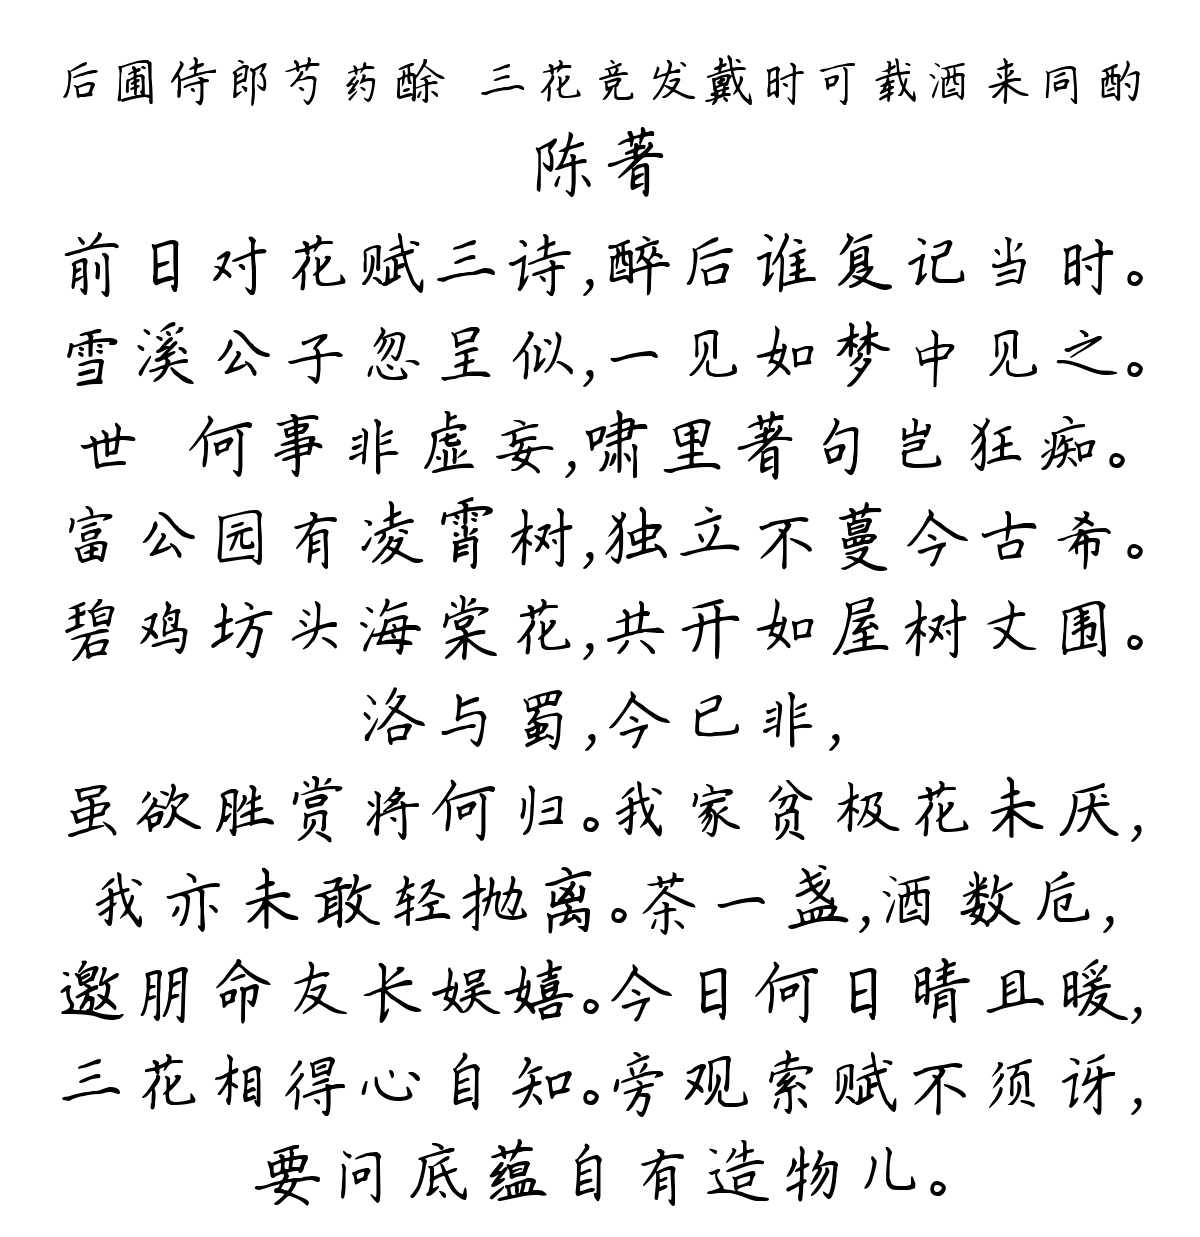 后圃侍郎芍药酴 三花竞发戴时可载酒来同酌
陈著
前日对花赋三诗,醉后谁复记当时。
雪溪公子忽呈似,一见如梦中见之。
世 何事非虚妄,啸里著句岂狂痴。
富公园有凌霄树,独立不蔓今古希。
碧鸡坊头海棠花,共开如屋树丈围。
洛与蜀,今已非,
虽欲胜赏将何归。我家贫极花未厌,
我亦未敢轻抛离。茶一盏,酒数卮,
邀朋命友长娱嬉。今日何日晴且暖,
三花相得心自知。旁观索赋不须讶,
要问底蕴自有造物儿。